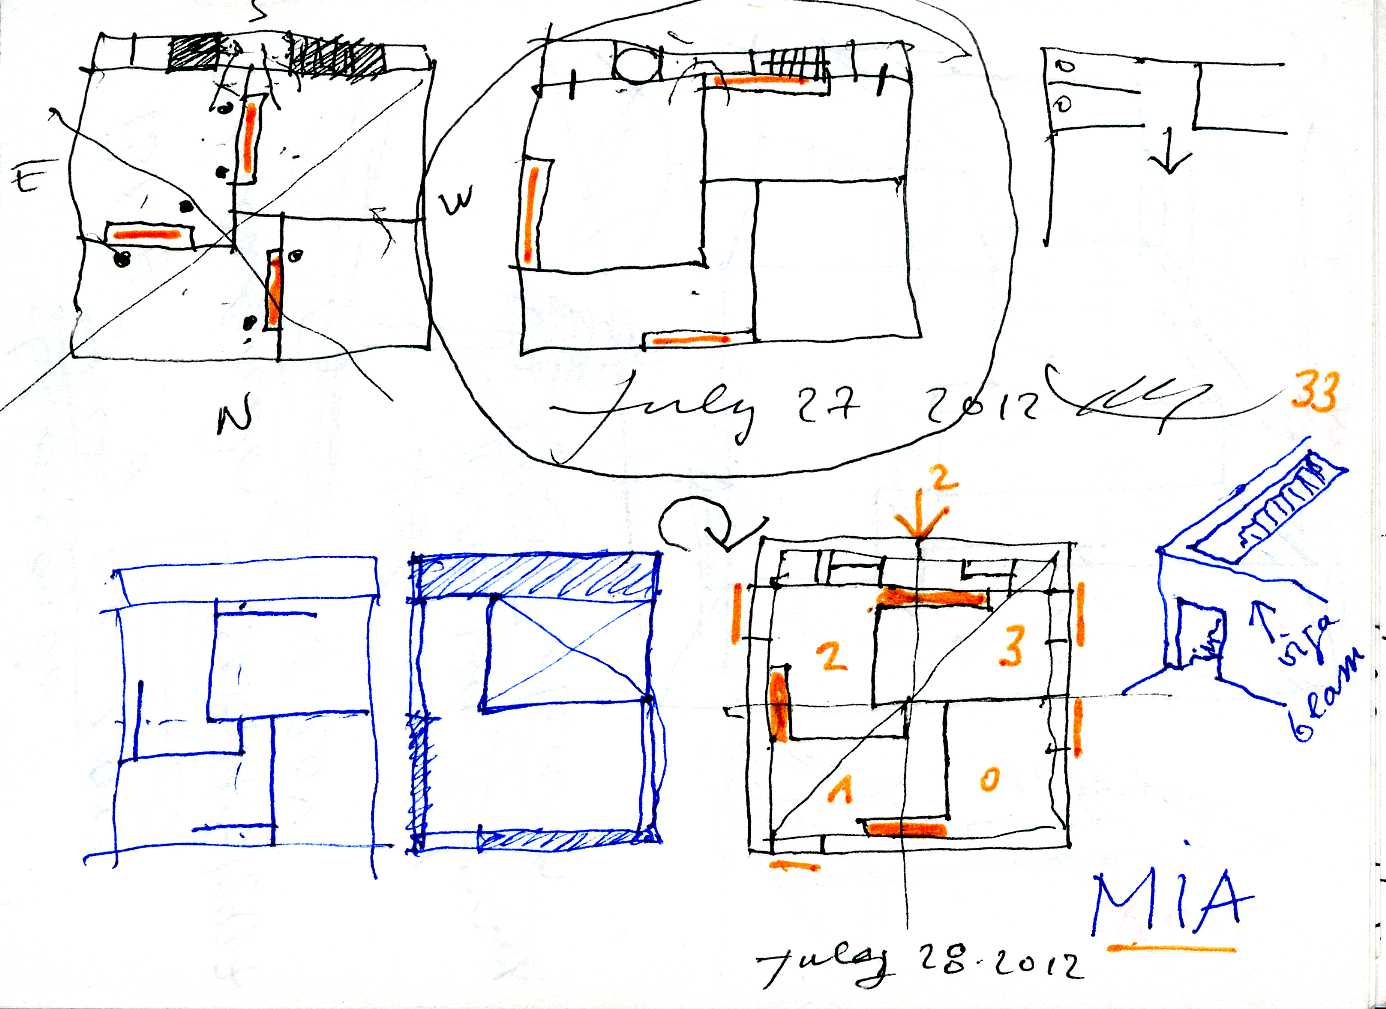 S
E
W
N
July 27 2012
33
2
2
3
1
0
viga
beam
MiA
July 28.2012